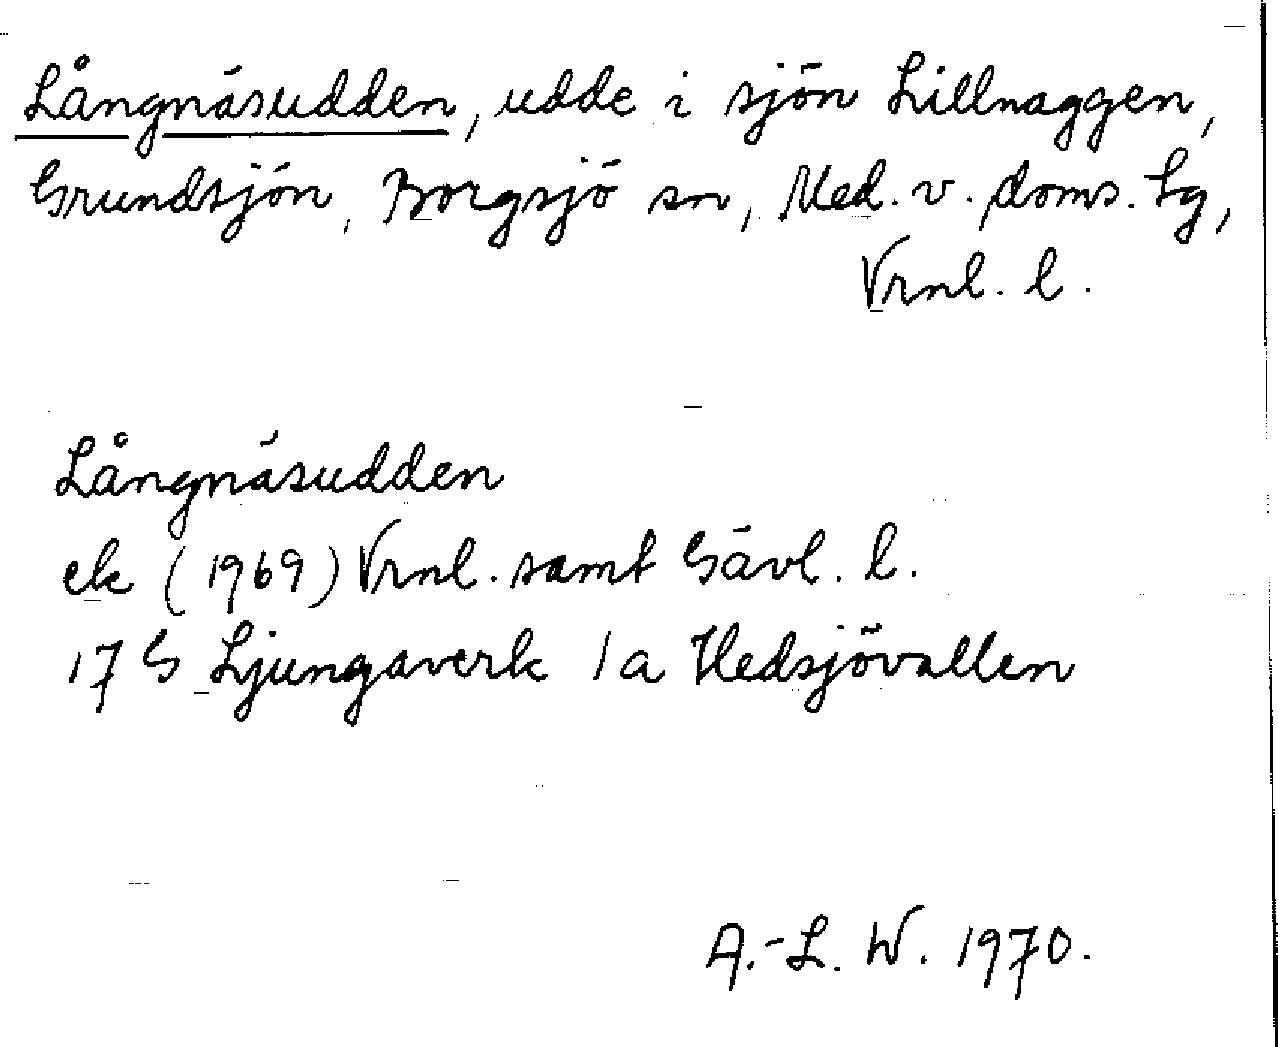 Långnäsudden, udde i sjön Lillnaggen,
Grundsjön, Borgsjö sn, Med. v. doms. tg,
Vrnl. l.
Långnäsudden
ek (1969) Vrnl. samt Gävl. l.
17 G Ljungaverk 1a Hedsjövallen
A.-L. W. 1970.